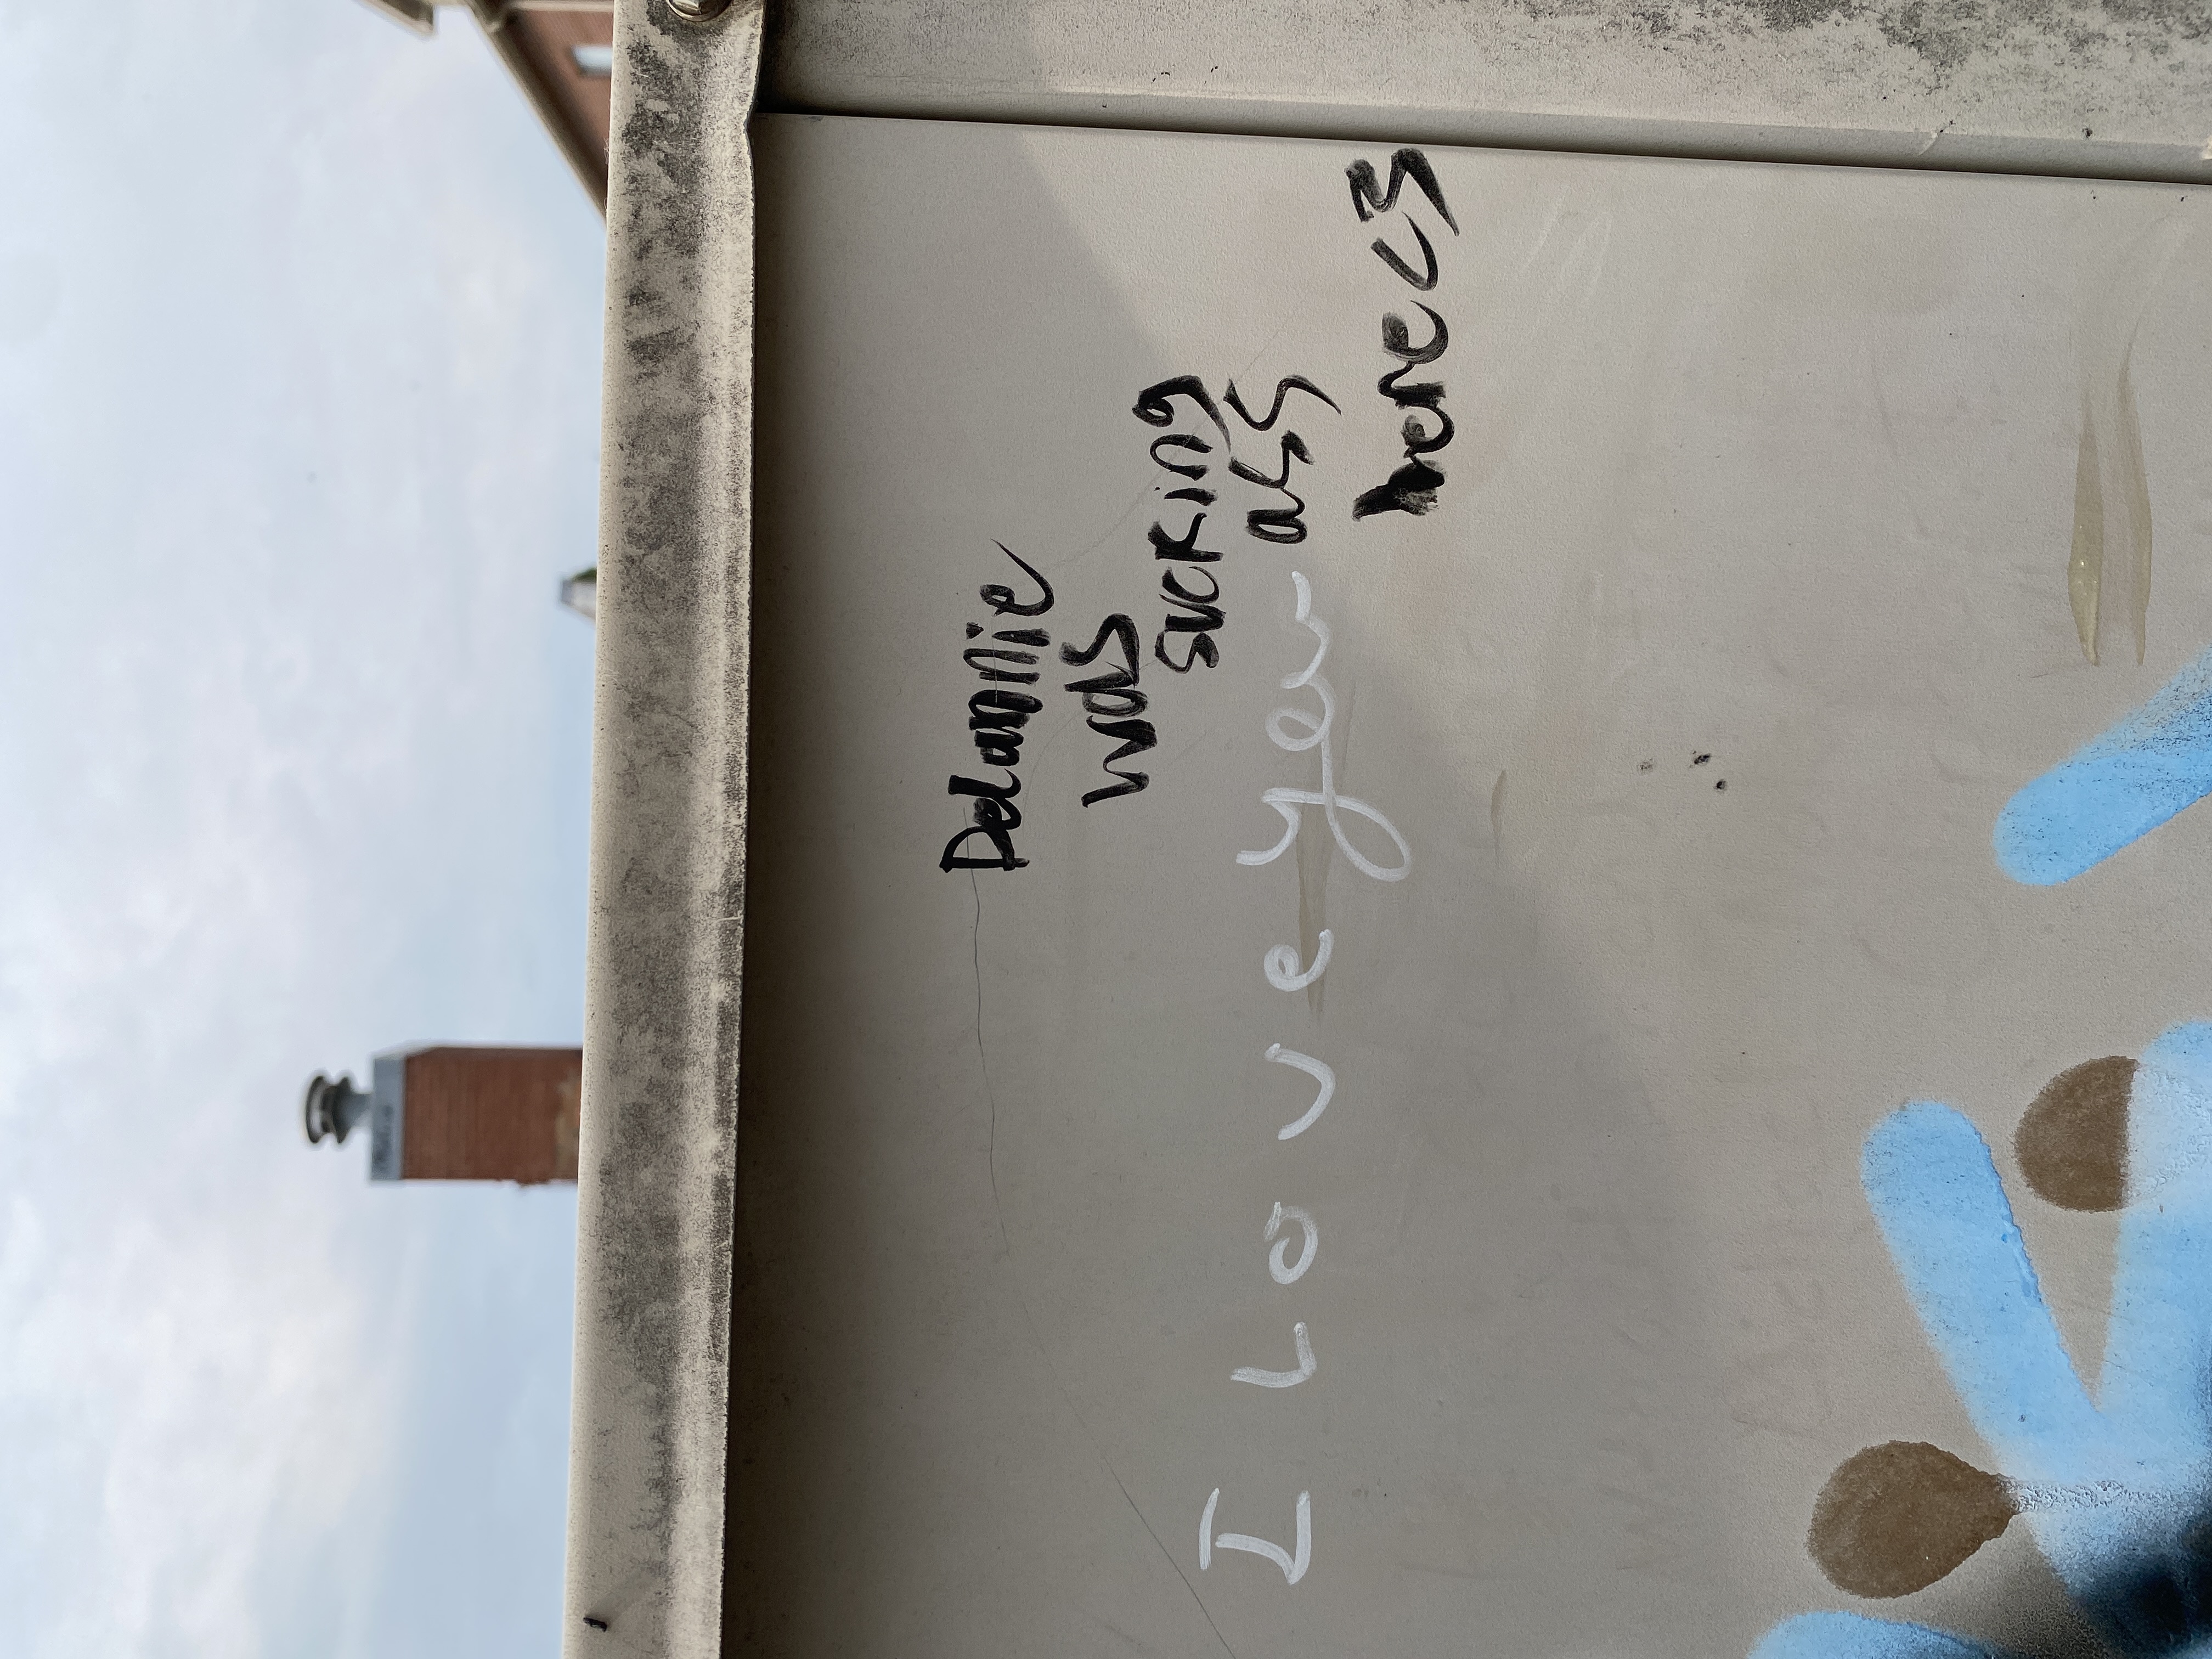 Delannie
was
sucking
ass
here <3
I Love you